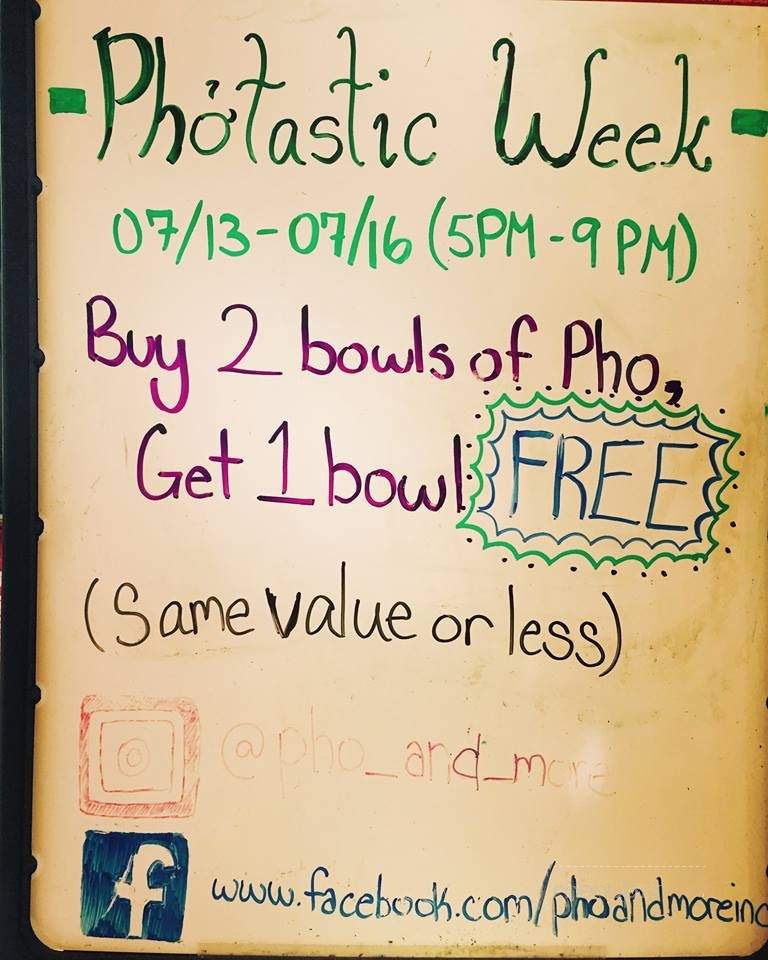 - Phởtastic Week -
07/13-07/16 (5PM-9PM)
Buy 2 bowls of Pho,
Get 1 bowl FREE
(Same value or less)
@pho_and_more
f www.facebook.com/phoandmoreinc